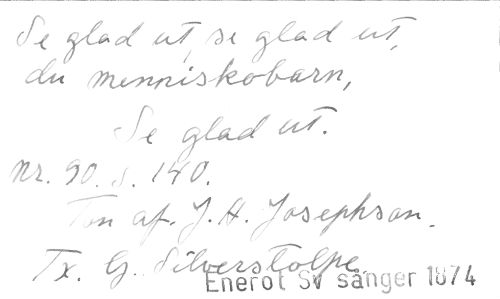 Se glad ut, se glad ut,
du menniskobarn,
Se glad ut.
Nr. 90. s. 140.
Ton af. J. A. Josephson.
Tx. G. Silverstolpe.
Enerot Sv sånger 1874